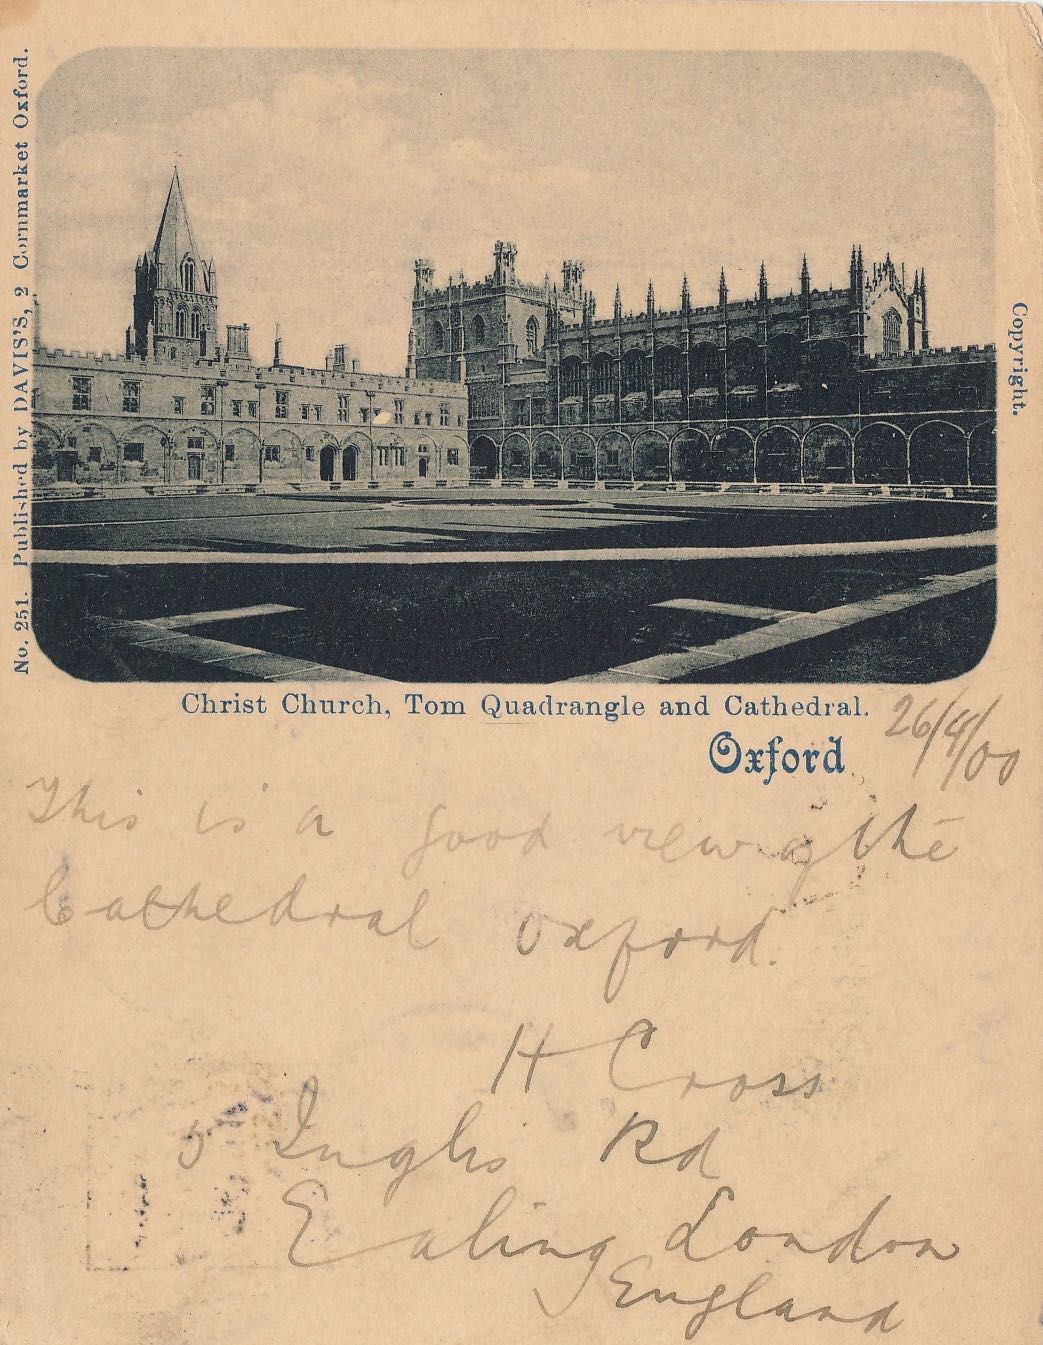 No. 251. Published by DAVIS'S, 2 Cornmarket Oxford.
Copyright.
Christ Church, Tom Quadrangle and Cathedral.
Oxford
26/4/00
This is a good view of the
Cathedral Oxford.
H Cross
5 Inglis Rd
Ealing London
England